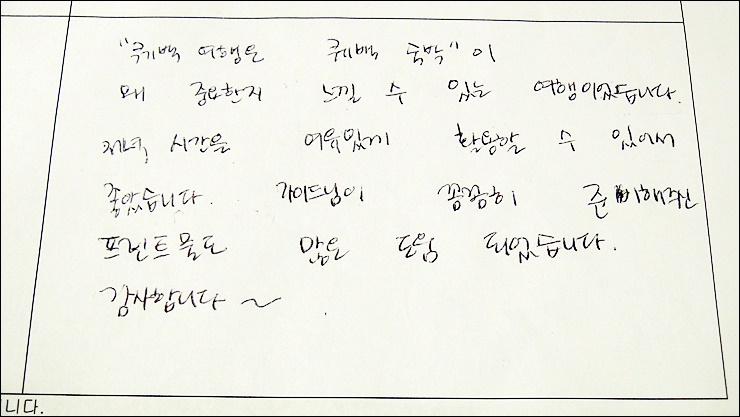 "퀘백 여행은 퀘백 숙박"이
왜 중요한지 느낄 수 있는 여행이었습니다.
저녁 시간을 여유있게 활용할 수 있어서
좋았습니다. 가이드님이 꼼꼼히 준비해주신
프린트물도 많은 도움 되었습니다.
감사합니다 ~
니다.